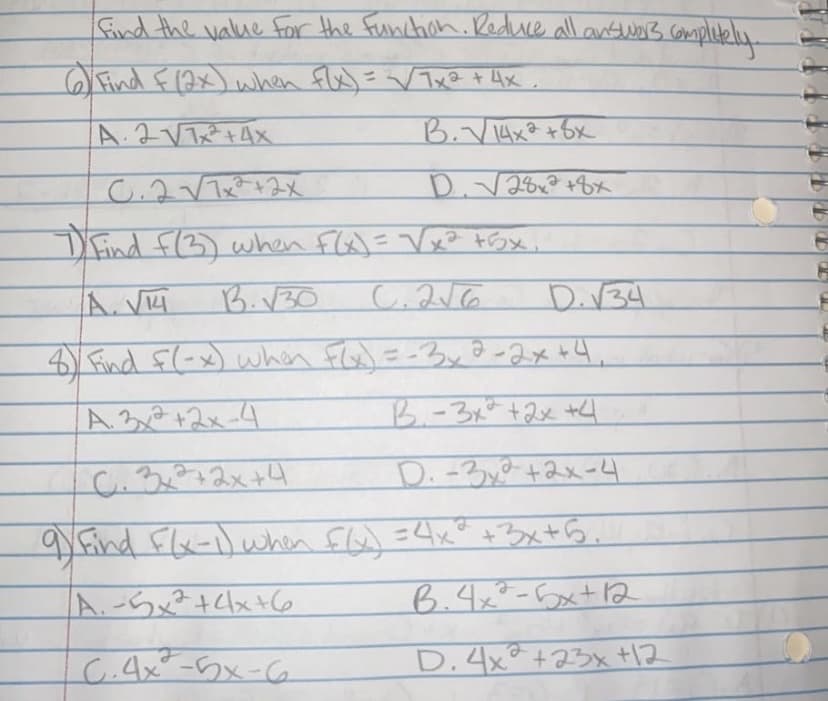 Find the value for the function. Reduce all answers completely.
6) Find f(2x) when f(x) = √7x² + 4x.
A. 2√7x² + 4x B. √14x² + 8x
C. 2√7x² + 2x D. √28x² + 8x
7) Find f(3) when f(x) = √x² + 5x.
A. √14 B. √30 C. 2√6 D. √34
8) Find f(-x) when f(x) = -3x² - 2x + 4.
A. 3x² + 2x - 4 B. -3x² + 2x + 4
C. 3x² + 2x + 4 D. -3x² + 2x - 4
9) Find f(x-1) when f(x) = 4x² + 3x + 5.
A. -5x² + 4x + 6 B. 4x² - 5x + 12
C. 4x² - 5x - 6 D. 4x² + 23x + 12